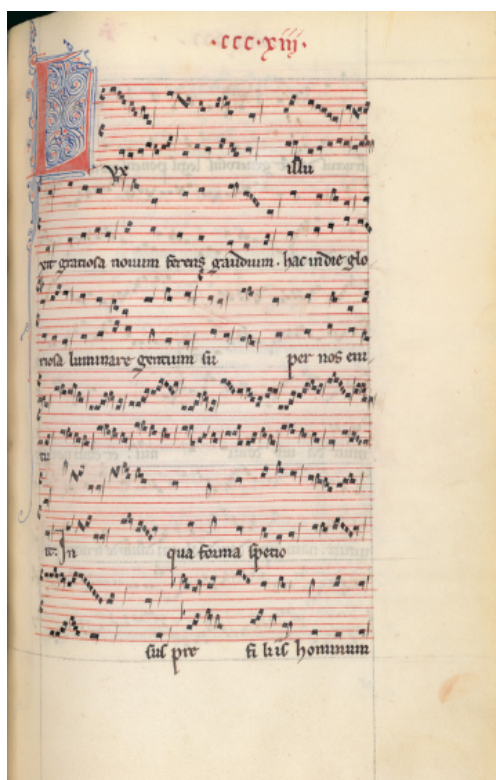 ·ccc·xiij·
Lux illu
xit gratiosa novum ferens gaudium · hac in die glo
riosa luminare gentium su per nos emi
tu
it. In qua forma spetio
sus pre fi li is hominum